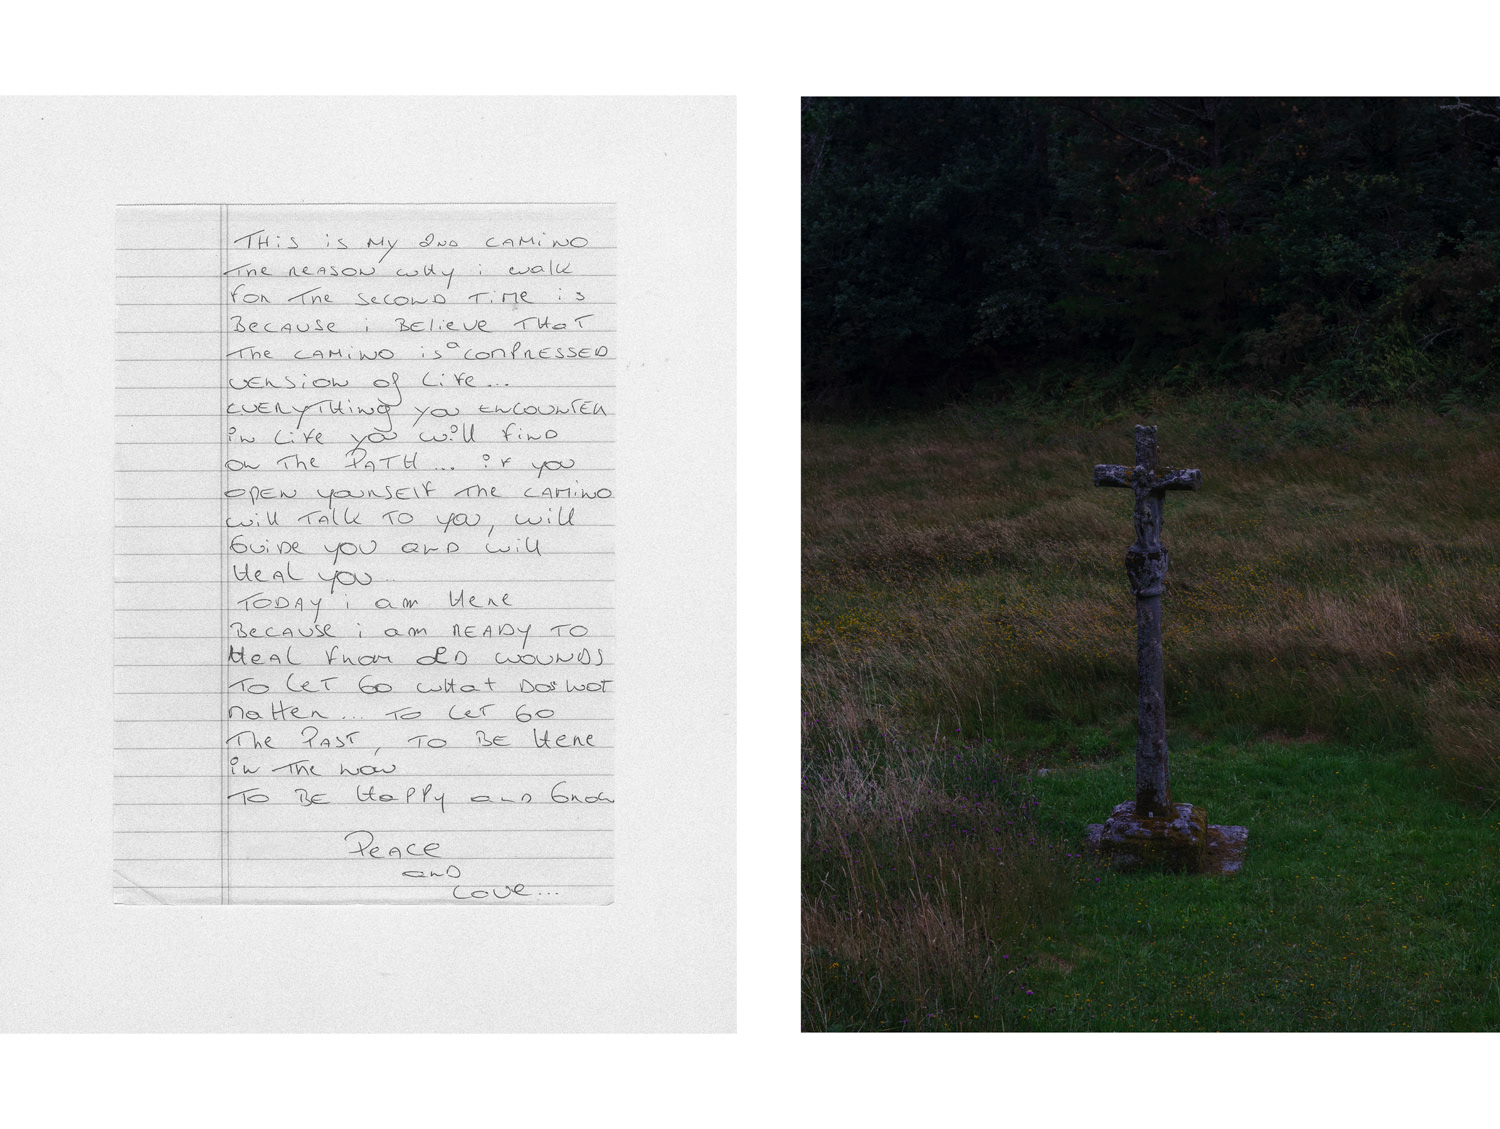 THiS iS MY 2ND CAMiNO
The REASON wHy i walk
For The SECOND TiME iS
BECAUSE i BELieVE THaT
The CAMiNO iS a COMPRESSED
VERSiON of LiFe...
EVERYTHing you ENCOUNTER
iN LiFe you will FiND
ON The PATH... iF you
OPEN YOURSELF The CAMiNO
will TAlk TO you, will
GuiDe you aND will
HEAL you..
TODAY i am HeRe
BECAUSE i am READY TO
HEAL FROM OLD WOUNDS
TO LeT GO wHat DOS NOT
MaTTeR... TO LeT GO
The PAST, TO BE HeRe
iN The NOW
TO BE HaPPy aND GROW
PEACE
aND
LOVE...